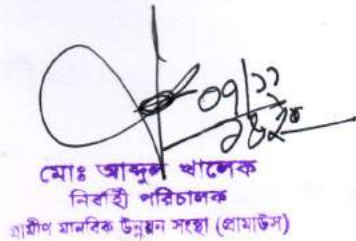 মোঃ আব্দুল খালেক
নির্বাহী পরিচালক
গ্রামীণ মানবিক উন্নয়ন সংস্থা (গ্রামাউস)